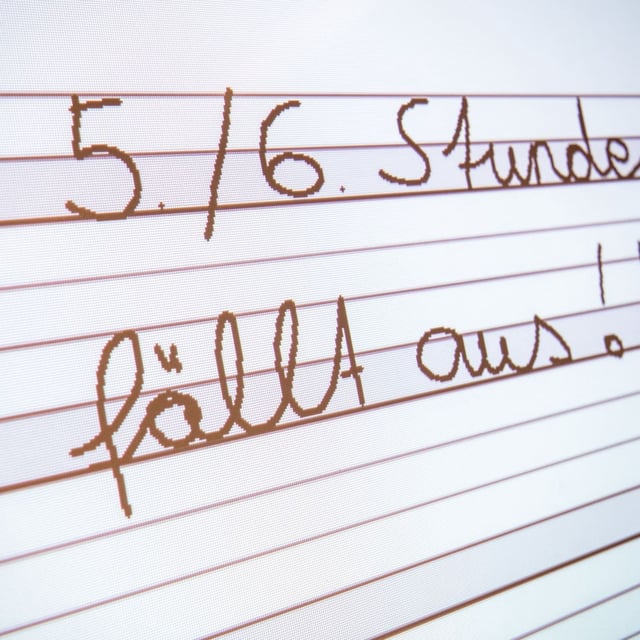 5./6. Stunde
fällt aus!